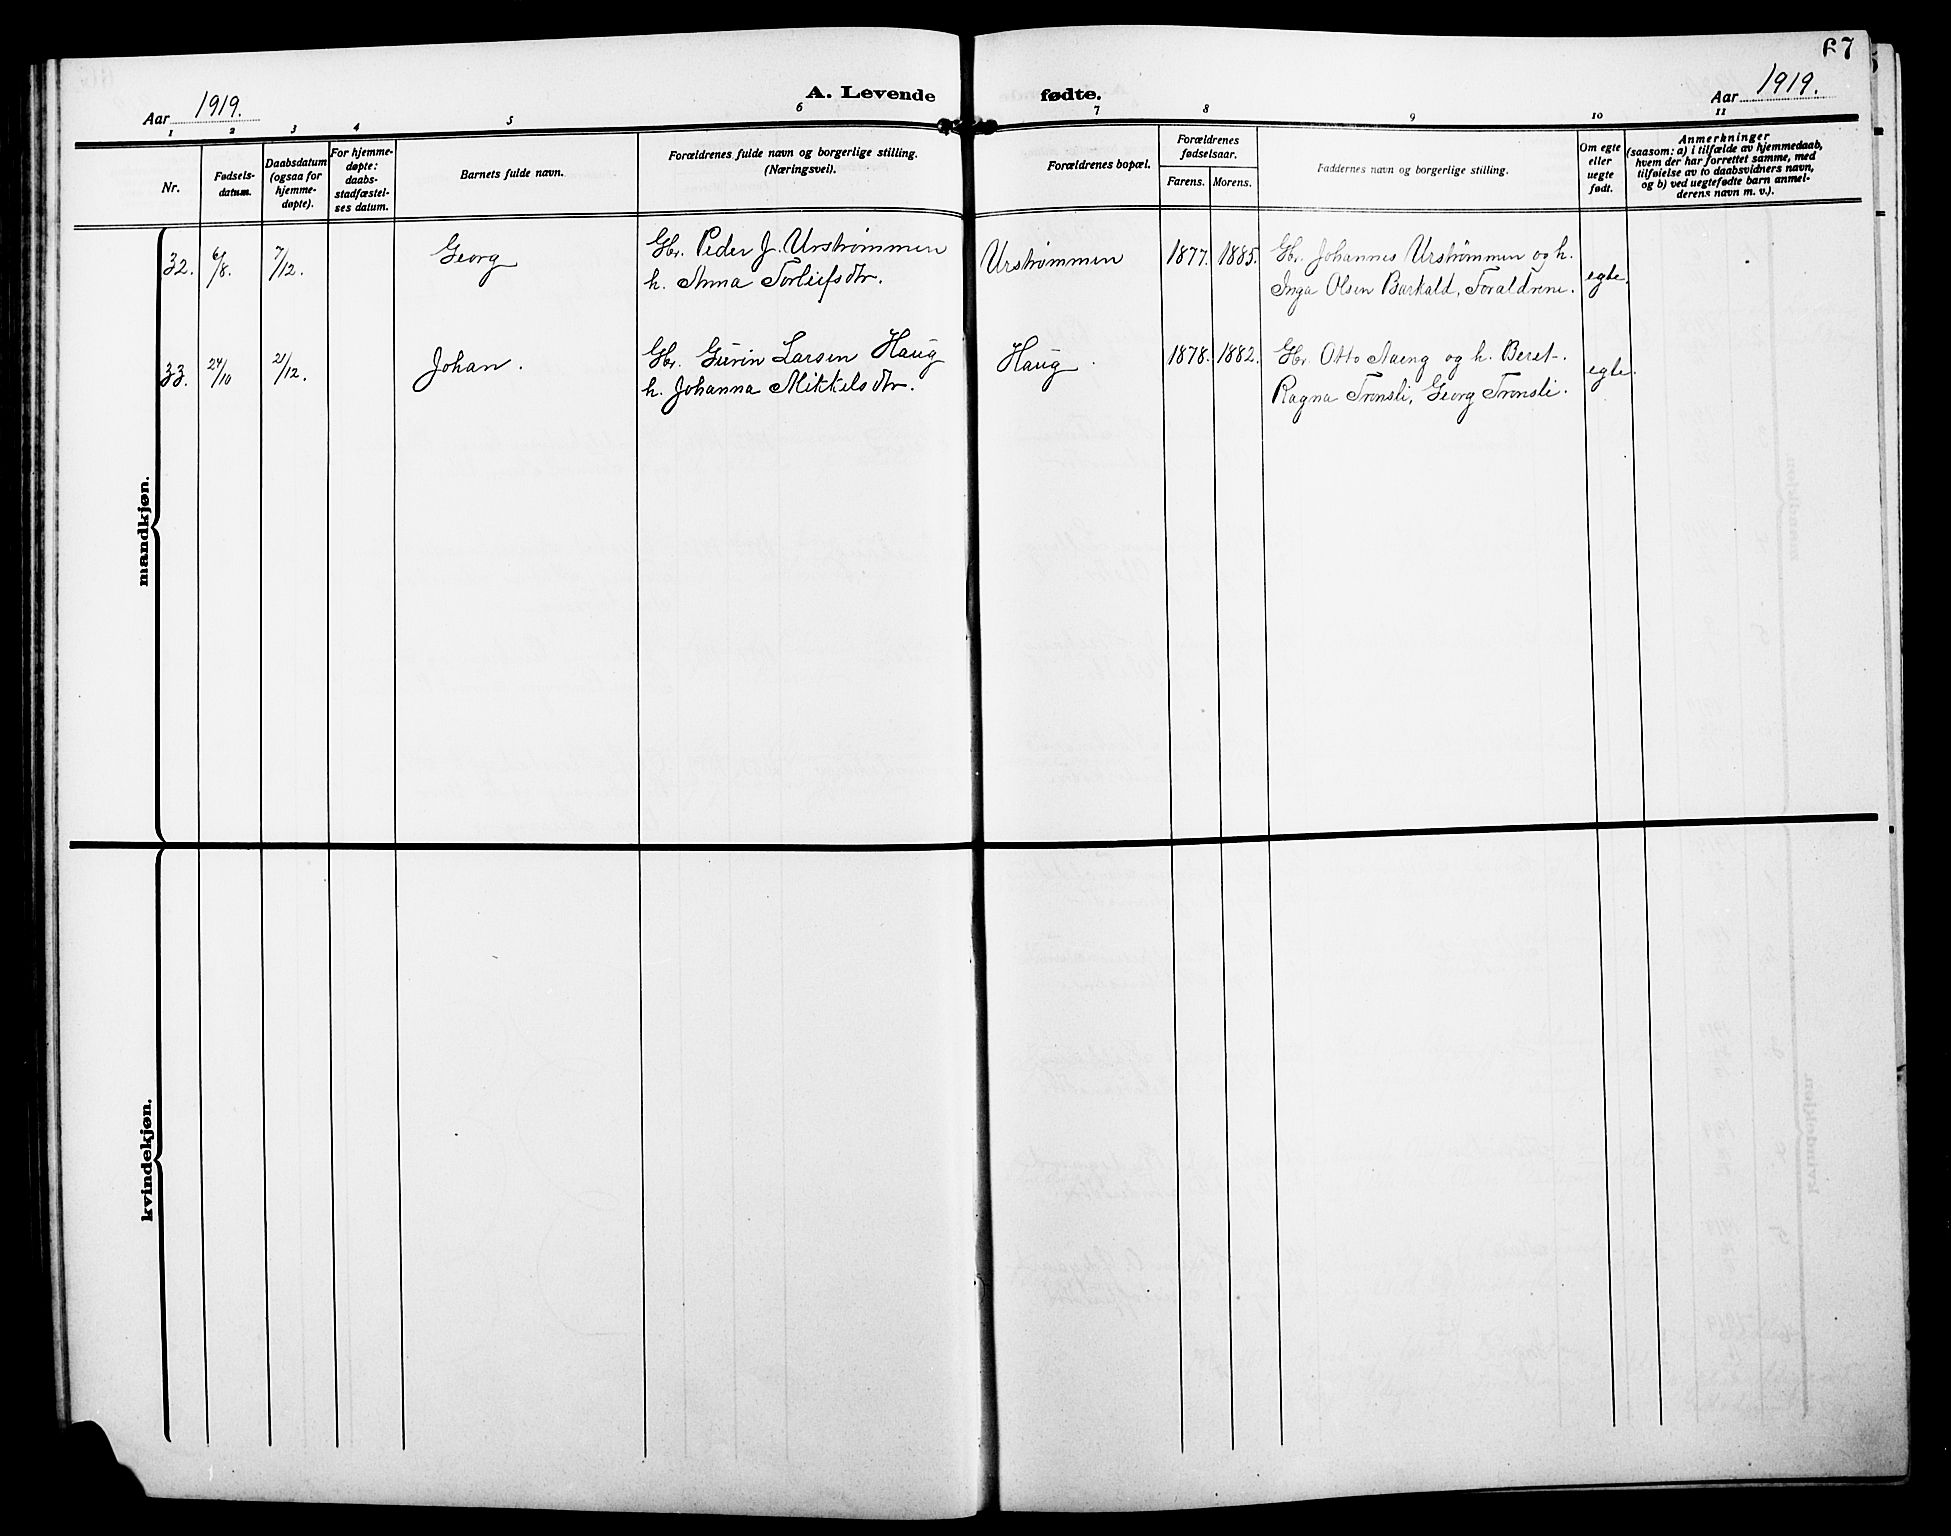 67
Aar 1919.
A. Levende fødte.
Aar 1919.
1 2 3 4 5 6 7 8 9 10 11
Nr.
Fødsels-
datum.
Daabsdatum
(ogsaa for
hjemme-
døpte).
For hjemme-
døpte:
daabs-
stadfæstel-
ses datum.
Barnets fulde navn.
Forældrenes fulde navn og borgerlige stilling.
(Næringsvei).
Forældrenes bopæl.
Forældrenes
fødselsaar.
Farens. Morens.
Faddernes navn og borgerlige stilling.
Om egte
eller
uegte
født.
Anmerkninger
(saasom: a) i tilfælde av hjemmedaab,
hvem der har forrettet samme, med
tilføielse av to daabsvidners navn,
og b) ved uegtefødte barn anmel-
derens navn m. v.).
mandkjøn.
32. 6/8. 7/12. Georg
Gbr. Peder J. Urstrømmen
h. Anna Torleifsdtr.
Urstrømmen 1877. 1885.
Gbr. Johannes Urstrømmen og h.
Inga Olsen Barkald, Forældrene.
egte.
33. 24/10 21/12. Johan.
Gbr. Larsen Haug
h. Johanna Mikkelsdtr.
Haug 1878. 1882.
Gbr. Otto Aaeng og h. Beret.
Ragna Tronsli, Georg Tronsli.
egte.
kvindekjøn.